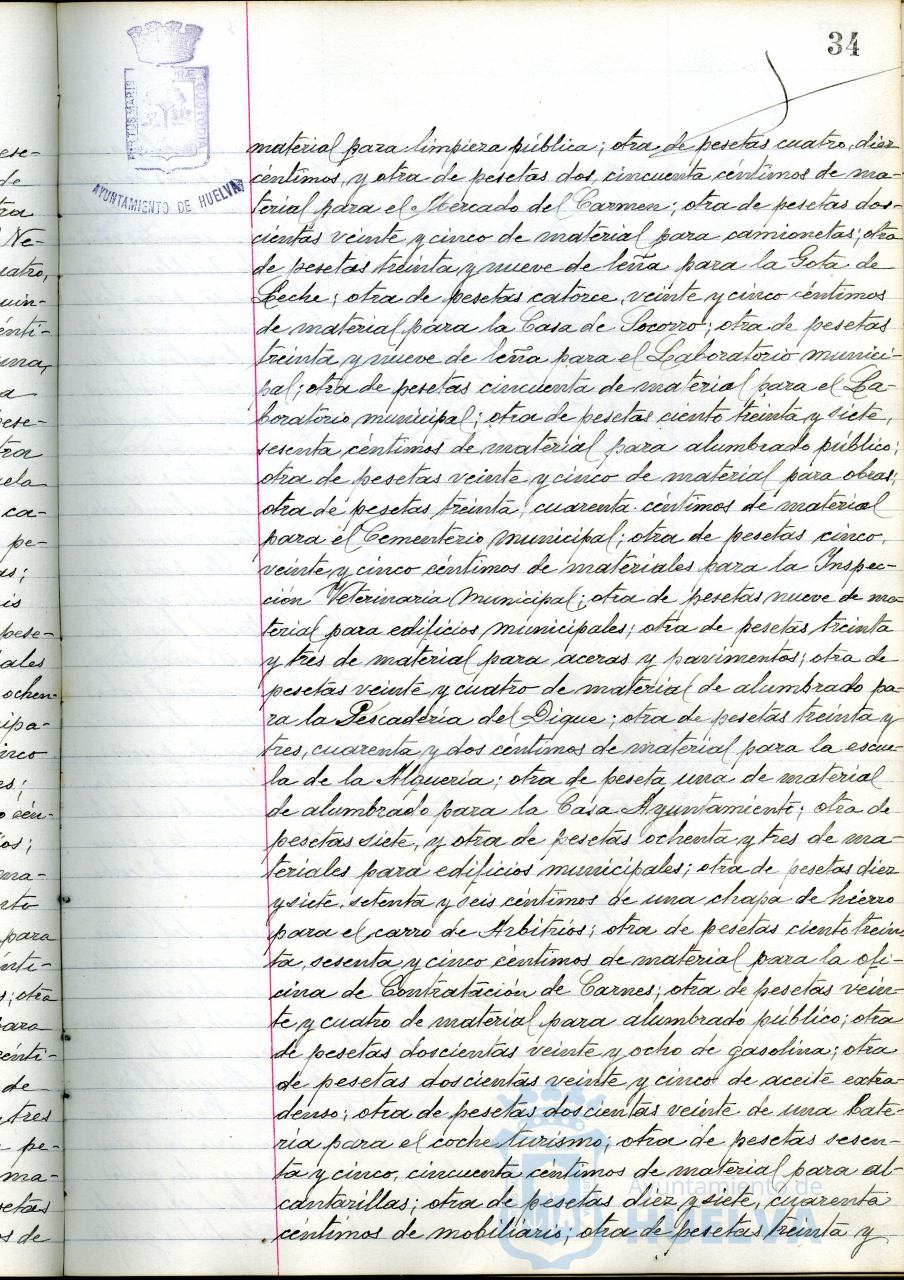 34
PORTUS MARIS
CUSTODIA
AYUNTAMIENTO DE HUELVA
material para limpieza pública; otra de pesetas cuatro, diez
céntimos, y otra de pesetas dos, cincuenta céntimos de ma-
terial para el Mercado del Carmen; otra de pesetas dos-
cientas veinte y cinco de material para camionetas; otra
de pesetas treinta y nueve de leña para la Gota de
Leche; otra de pesetas catorce, veinte y cinco céntimos
de material para la Casa de Socorro; otra de pesetas
treinta y nueve de leña para el Laboratorio munici-
pal; otra de pesetas cincuenta de material para el La-
boratorio municipal; otra de pesetas ciento treinta y siete,
sesenta céntimos de material para alumbrado público;
otra de pesetas veinte y cinco de material para obras;
otra de pesetas treinta, cuarenta céntimos de material
para el Cementerio municipal; otra de pesetas cinco,
veinte y cinco céntimos de materiales para la Inspec-
ción Veterinaria Municipal; otra de pesetas nueve de ma-
terial para edificios municipales; otra de pesetas treinta
y tres de material para aceras y pavimentos; otra de
pesetas veinte y cuatro de material de alumbrado pa-
ra la Pescadería del Dique; otra de pesetas treinta y
tres, cuarenta y dos céntimos de material para la escue-
la de la Alquería; otra de peseta una de material
de alumbrado para la Casa Ayuntamiento; otra de
pesetas siete, y otra de pesetas ochenta y tres de ma-
teriales para edificios municipales; otra de pesetas diez
y siete, setenta y seis céntimos de una chapa de hierro
para el carro de Arbitrios; otra de pesetas ciento trein-
ta, sesenta y cinco céntimos de material para la ofi-
cina de Contratación de Carnes; otra de pesetas vein-
te y cuatro de material para alumbrado público; otra
de pesetas doscientas veinte y ocho de gasolina; otra
de pesetas doscientas veinte y cinco de aceite extra-
denso; otra de pesetas doscientas veinte de una bate-
ría para el coche turismo; otra de pesetas sesen-
ta y cinco, cincuenta céntimos de material para al-
cantarillas; otra de pesetas diez y siete, cuarenta
céntimos de mobiliario; otra de pesetas treinta y
Ayuntamiento de
HUELVA